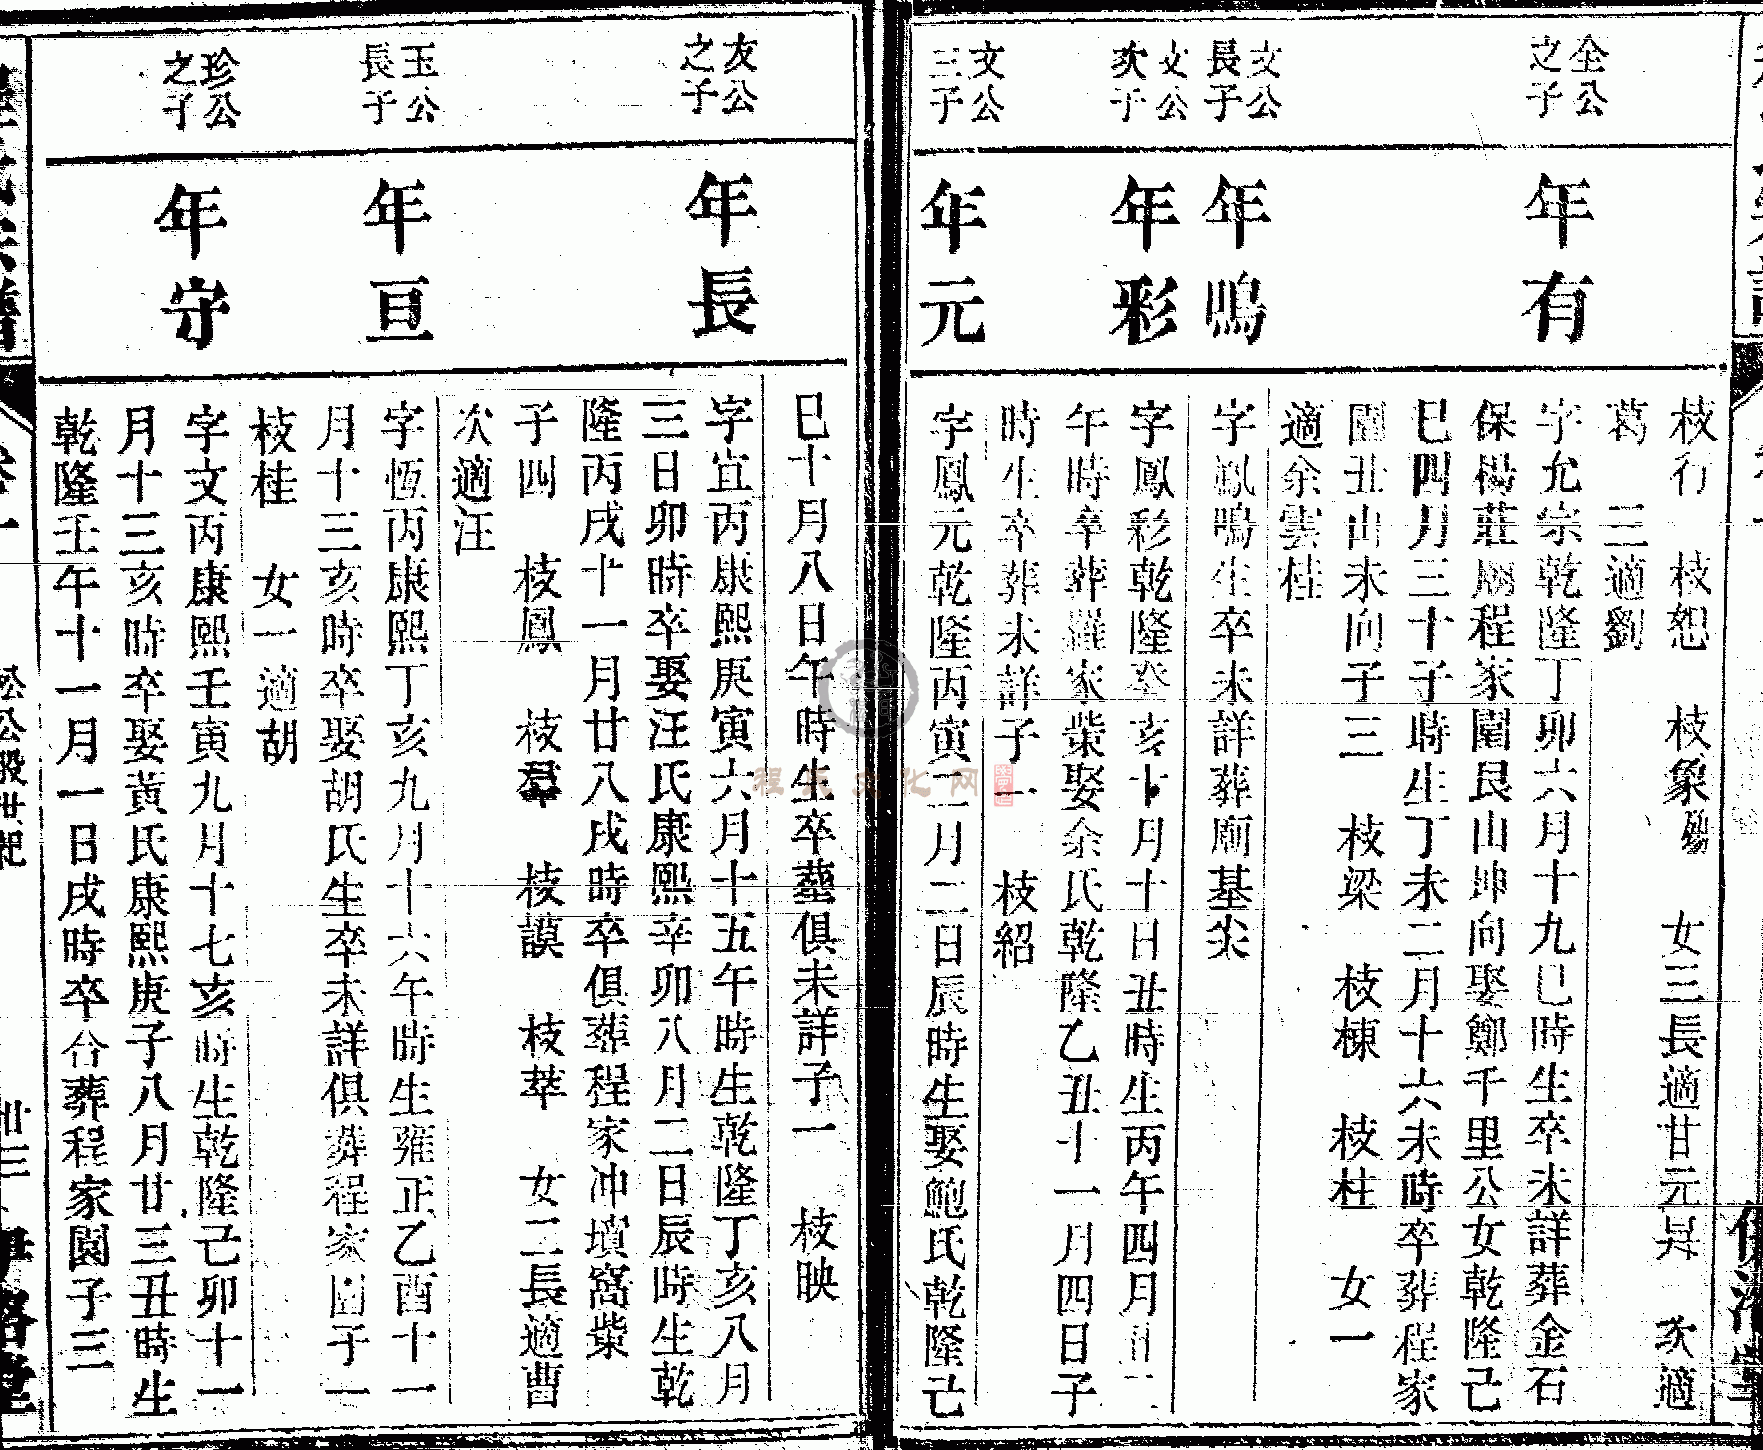 枝行　枝恕　枝象殤　女三長適甘元昇　次適
葛　三適劉
全公
之子
年有
字允宗乾隆丁卯六月十九巳時生卒未詳葬金石
保楊莊廟程家園艮山坤向娶鄭千里公女乾隆己
巳四月三十子時生丁未二月十六未時卒葬程家
園丑山未向子三　枝梁　枝棟　枝柱　女一
適余雲桂
文公
長子
年鳴
字鳳鳴生卒未詳葬廟基尖
文公
次子
年彩
字鳳彩乾隆癸亥十月十日丑時生丙午四月廿二
午時卒葬羅家柴娶余氏乾隆乙丑十一月四日子
時生卒葬未詳子一　枝紹
文公
三子
年元
字鳳元乾隆丙寅二月二日辰時生娶鮑氏乾隆己
巳十月八日午時生卒塟俱未詳子一　枝映
友公
之子
年長
字宜丙康熙庚寅六月十五午時生乾隆丁亥八月
三日卯時卒娶汪氏康熙辛卯八月二日辰時生乾
隆丙戌十一月廿八戌時卒俱葬程家冲墳窩柴
子四　枝鳳　枝羣　枝謨　枝萃　女二長適曹
次適汪
玉公
長子
年亘
字恆丙康熙丁亥九月十六午時生雍正乙酉十一
月十三亥時卒娶胡氏生卒未詳俱葬程家園子一
枝桂　女一適胡
珍公
之子
年守
字文丙康熙壬寅九月十七亥時生乾隆己卯十一
月十三亥時卒娶黃氏康熙庚子八月廿三丑時生
乾隆壬午十一月一日戌時卒合葬程家園子三
松公股世紀
卅三
程氏文化网